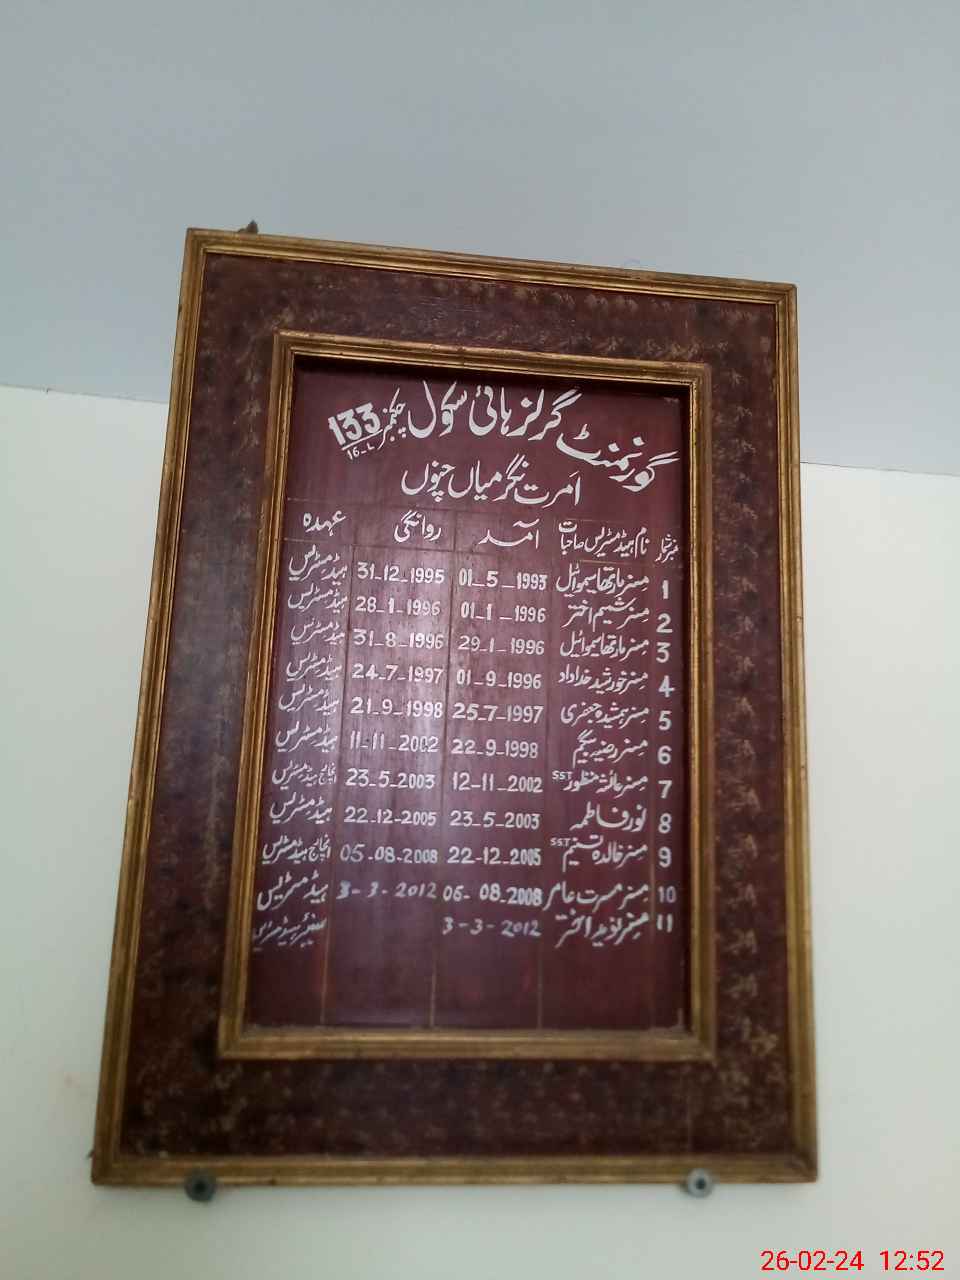 گورنمنٹ گرلز ہائی سکول چکنمبر 133/16-L
امرت نگر میاں چنوں
نمبر شمار نام ہیڈ مسٹریس صاحبات آمد روانگی عہدہ
1 مسز مارتھا سیموائیل 01-5-1993 31-12-1995 ہیڈ مسٹریس
2 مسز شمیم اختر 01-1-1996 28-1-1996 ہیڈ مسٹریس
3 مسز مارتھا سیموائیل 29-1-1996 31-8-1996 ہیڈ مسٹریس
4 مسز خورشید خداداد 01-9-1996 24-7-1997 ہیڈ مسٹریس
5 مسز جعفری 25-7-1997 21-9-1998 ہیڈ مسٹریس
6 مسز رضیہ بیگم 22-9-1998 11-11-2002 ہیڈ مسٹریس
7 مسز عائشہ منظور SST 12-11-2002 23-5-2003 انچارج ہیڈ مسٹریس
8 نور فاطمہ 23-5-2003 22-12-2005 ہیڈ مسٹریس
9 مسز خالدہ تسنیم SST 22-12-2005 05-08-2008 انچارج ہیڈ مسٹریس
10 مسز مسرت عامر 06-08-2008 3-3-2012 ہیڈ مسٹریس
11 مسز نوید اختر 3-3-2012 سینئر ہیڈ مسٹریس
26-02-24 12:52